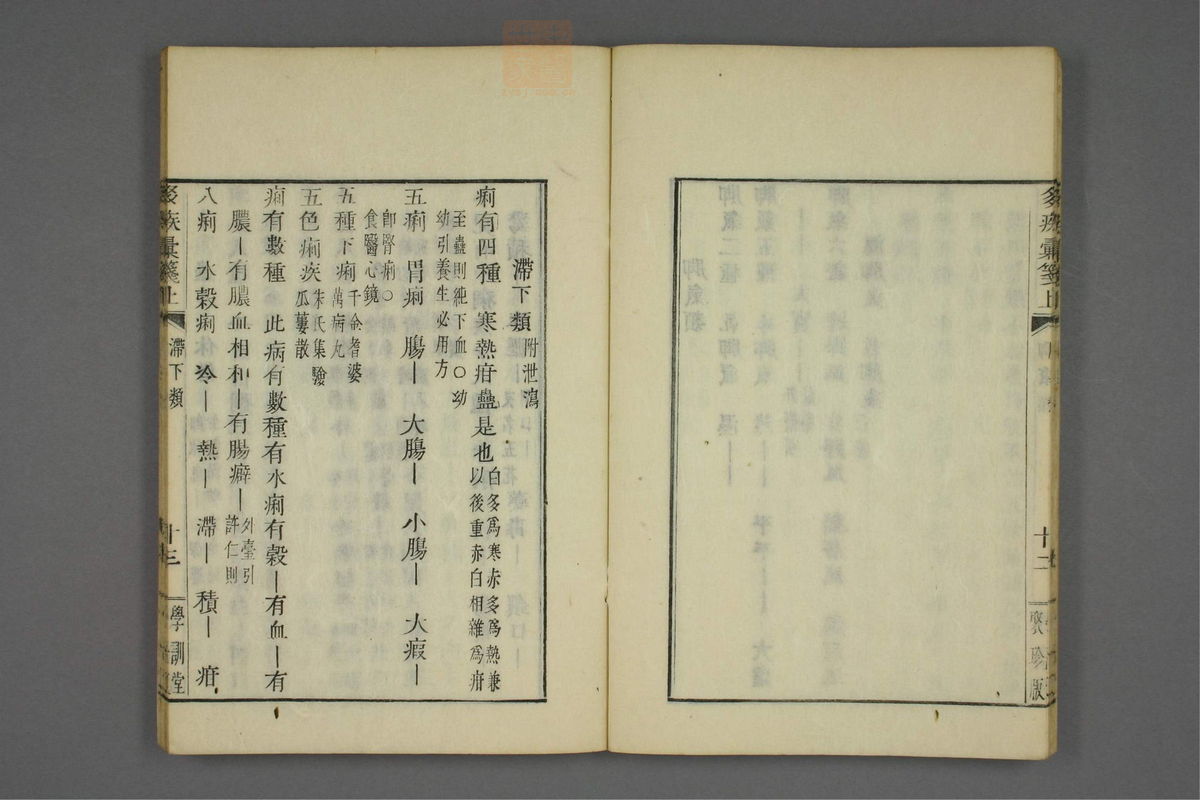 疾彙箋上 十二 聚珍版
滯下類 附泄瀉
痢有四種 寒熱疳蠱是也 白多爲寒赤多爲熱兼
以後重赤白相雜爲疳
至蠱則純下血○幼
幼引養生必用方
五痢 胃痢 腸― 大腸― 小腸― 大瘕―
卽腎痢○
食醫心鏡
五種下痢 千金耆婆
萬病丸
五色痢疾 朱氏集驗
瓜蔞散
痢有數種 此病有數種有水痢有穀―有血―有
膿―有膿血相和―有腸癖― 外臺引
許仁則
八痢 水穀痢 冷― 熱― 滯― 積― 疳
疾彙箋上 滯下類 十三 學訓堂